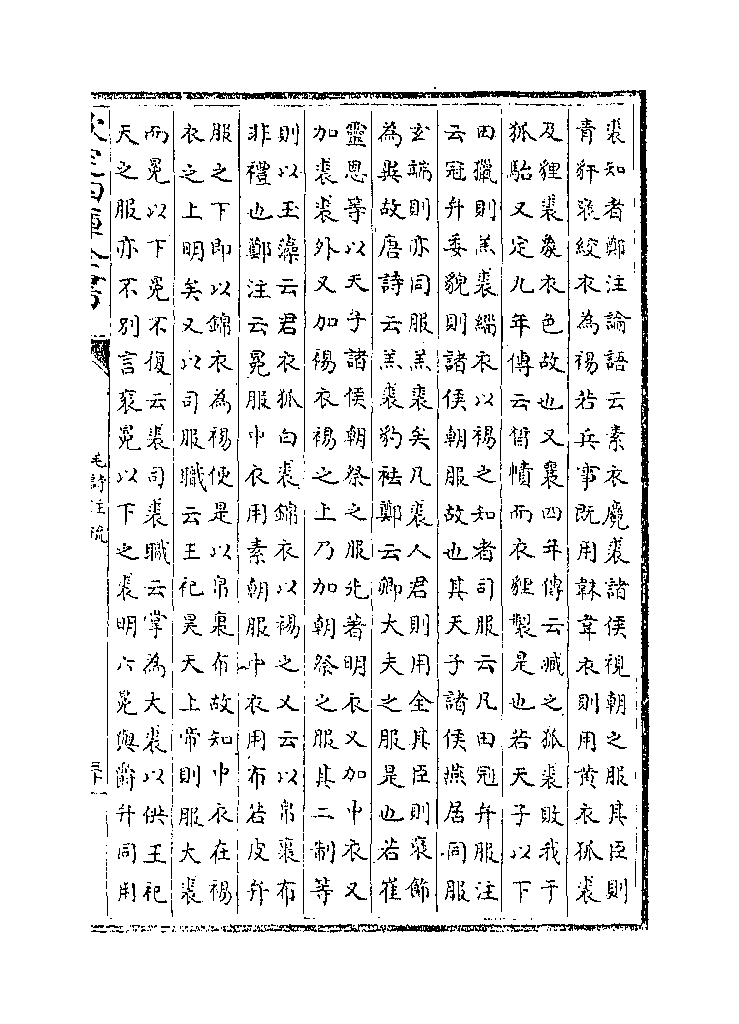 裘知者鄭注論語云素衣麑裘諸侯視朝之服其臣則
青豻褎絞衣為裼若兵事既用韎韋衣則用黄衣狐裘
及貍裘象衣色故也又襄四年傳云臧之狐裘敗我于
狐駘又定九年傳云晳幘而衣貍製是也若天子以下
田獵則羔裘緇衣以裼之知者司服云凡田冠弁服注
云冠弁委貌則諸侯朝服故也其天子諸侯燕居同服
玄端則亦同服羔裘矣凡裘人君則用全其臣則褎飾
為異故唐詩云羔裘豹袪鄭云卿大夫之服是也若崔
靈恩等以天子諸侯朝祭之服先著明衣又加中衣又
加裘裘外又加裼衣裼之上乃加朝祭之服其二制等
則以玉藻云君衣狐白裘錦衣以裼之又云以帛裏布
非禮也鄭注云冕服中衣用素朝服中衣用布若皮弁
服之下即以錦衣為裼便是以帛裏布故知中衣在裼
衣之上明矣又以司服職云王祀昊天上帝則服大裘
而冕以下冕不復云裘司裘職云掌為大裘以供王祀
天之服亦不别言衮冕以下之裘明六冕與爵弁同用
欽定四庫全書
毛詩注疏